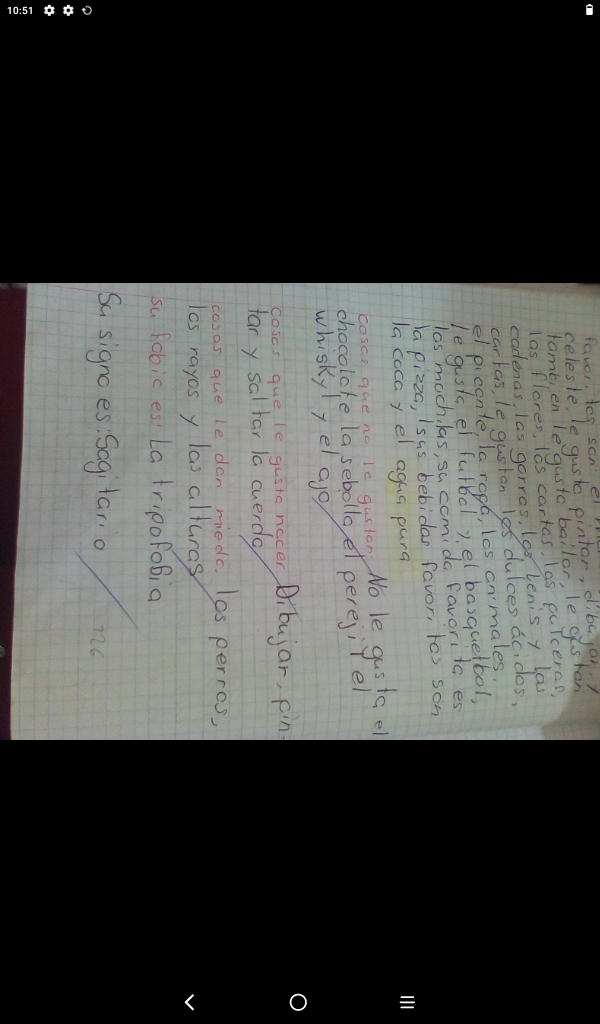 10:51
favoritos son: el
celeste. le gusta pintar, dibujar y
también le gusta bailar, le gustan
las flores, las cartas, las pulceras,
cadenas, las gorras, los tenis y las
carias, le gustan los dulces ácidos,
el picante, la ropa, los animales.
le gusta el futbal y el basquetbol,
las mochilas, su comida favorita es
la pizza, sus bebidas favoritas son
la coca y el agua pura
cosas que no le gustan: No le gusta el
chocolate la sebolla el perejil el
whiskyl y el ajo
cosas que le gusta hacer. Dibujar, pin-
tar y saltar la cuerda
cosas que le dan miedo. los perros,
los rayos y las alturas
su fobic es: La tripofobia
Su signo es: Sagitario
126